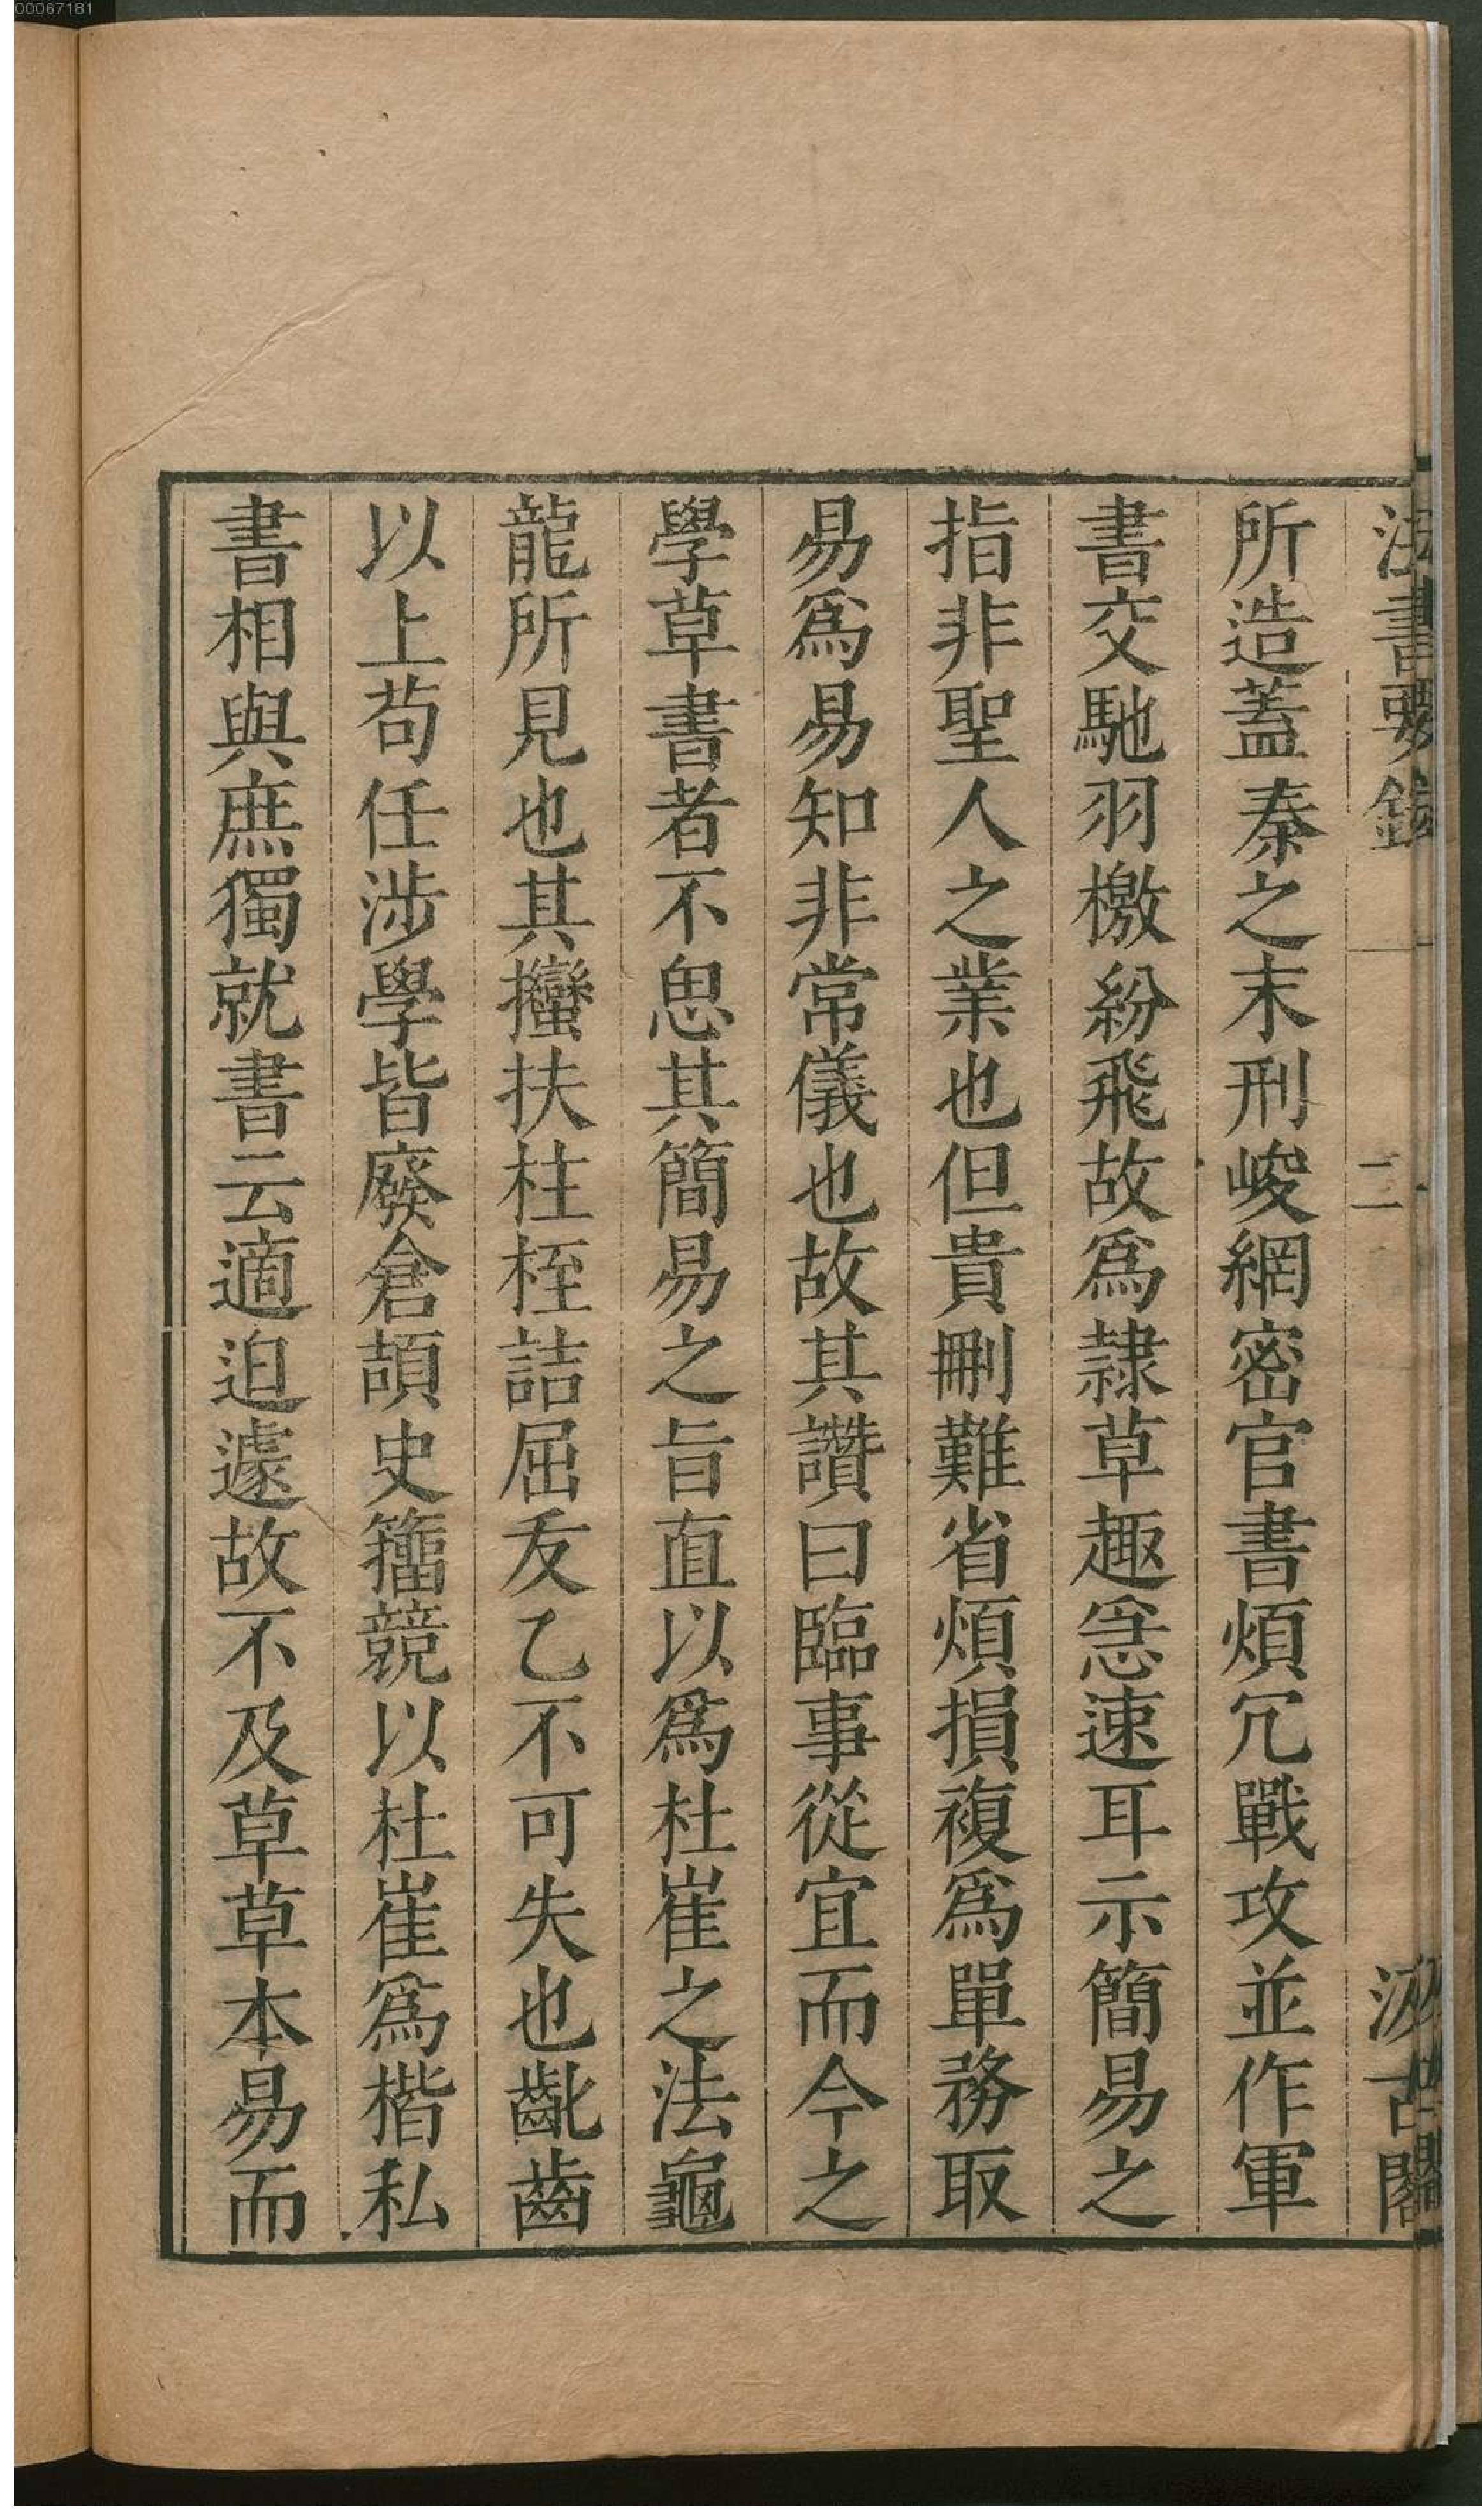 00067181
法書要錄
二
汲古閣
所造蓋秦之末刑峻網密官書煩冗戰攻並作軍
書交馳羽檄紛飛故爲隸草趣急速耳示簡易之
指非聖人之業也但貴刪難省煩損複爲單務取
易爲易知非常儀也故其讚曰臨事從宜而今之
學草書者不思其簡易之旨直以爲杜崔之法龜
龍所見也其扶柱桎詰屈犮乙不可失也齔齒
以上苟任涉學皆廢倉頡史籀競以杜崔爲楷私
書相與庶獨就書云適迫遽故不及草草本易而